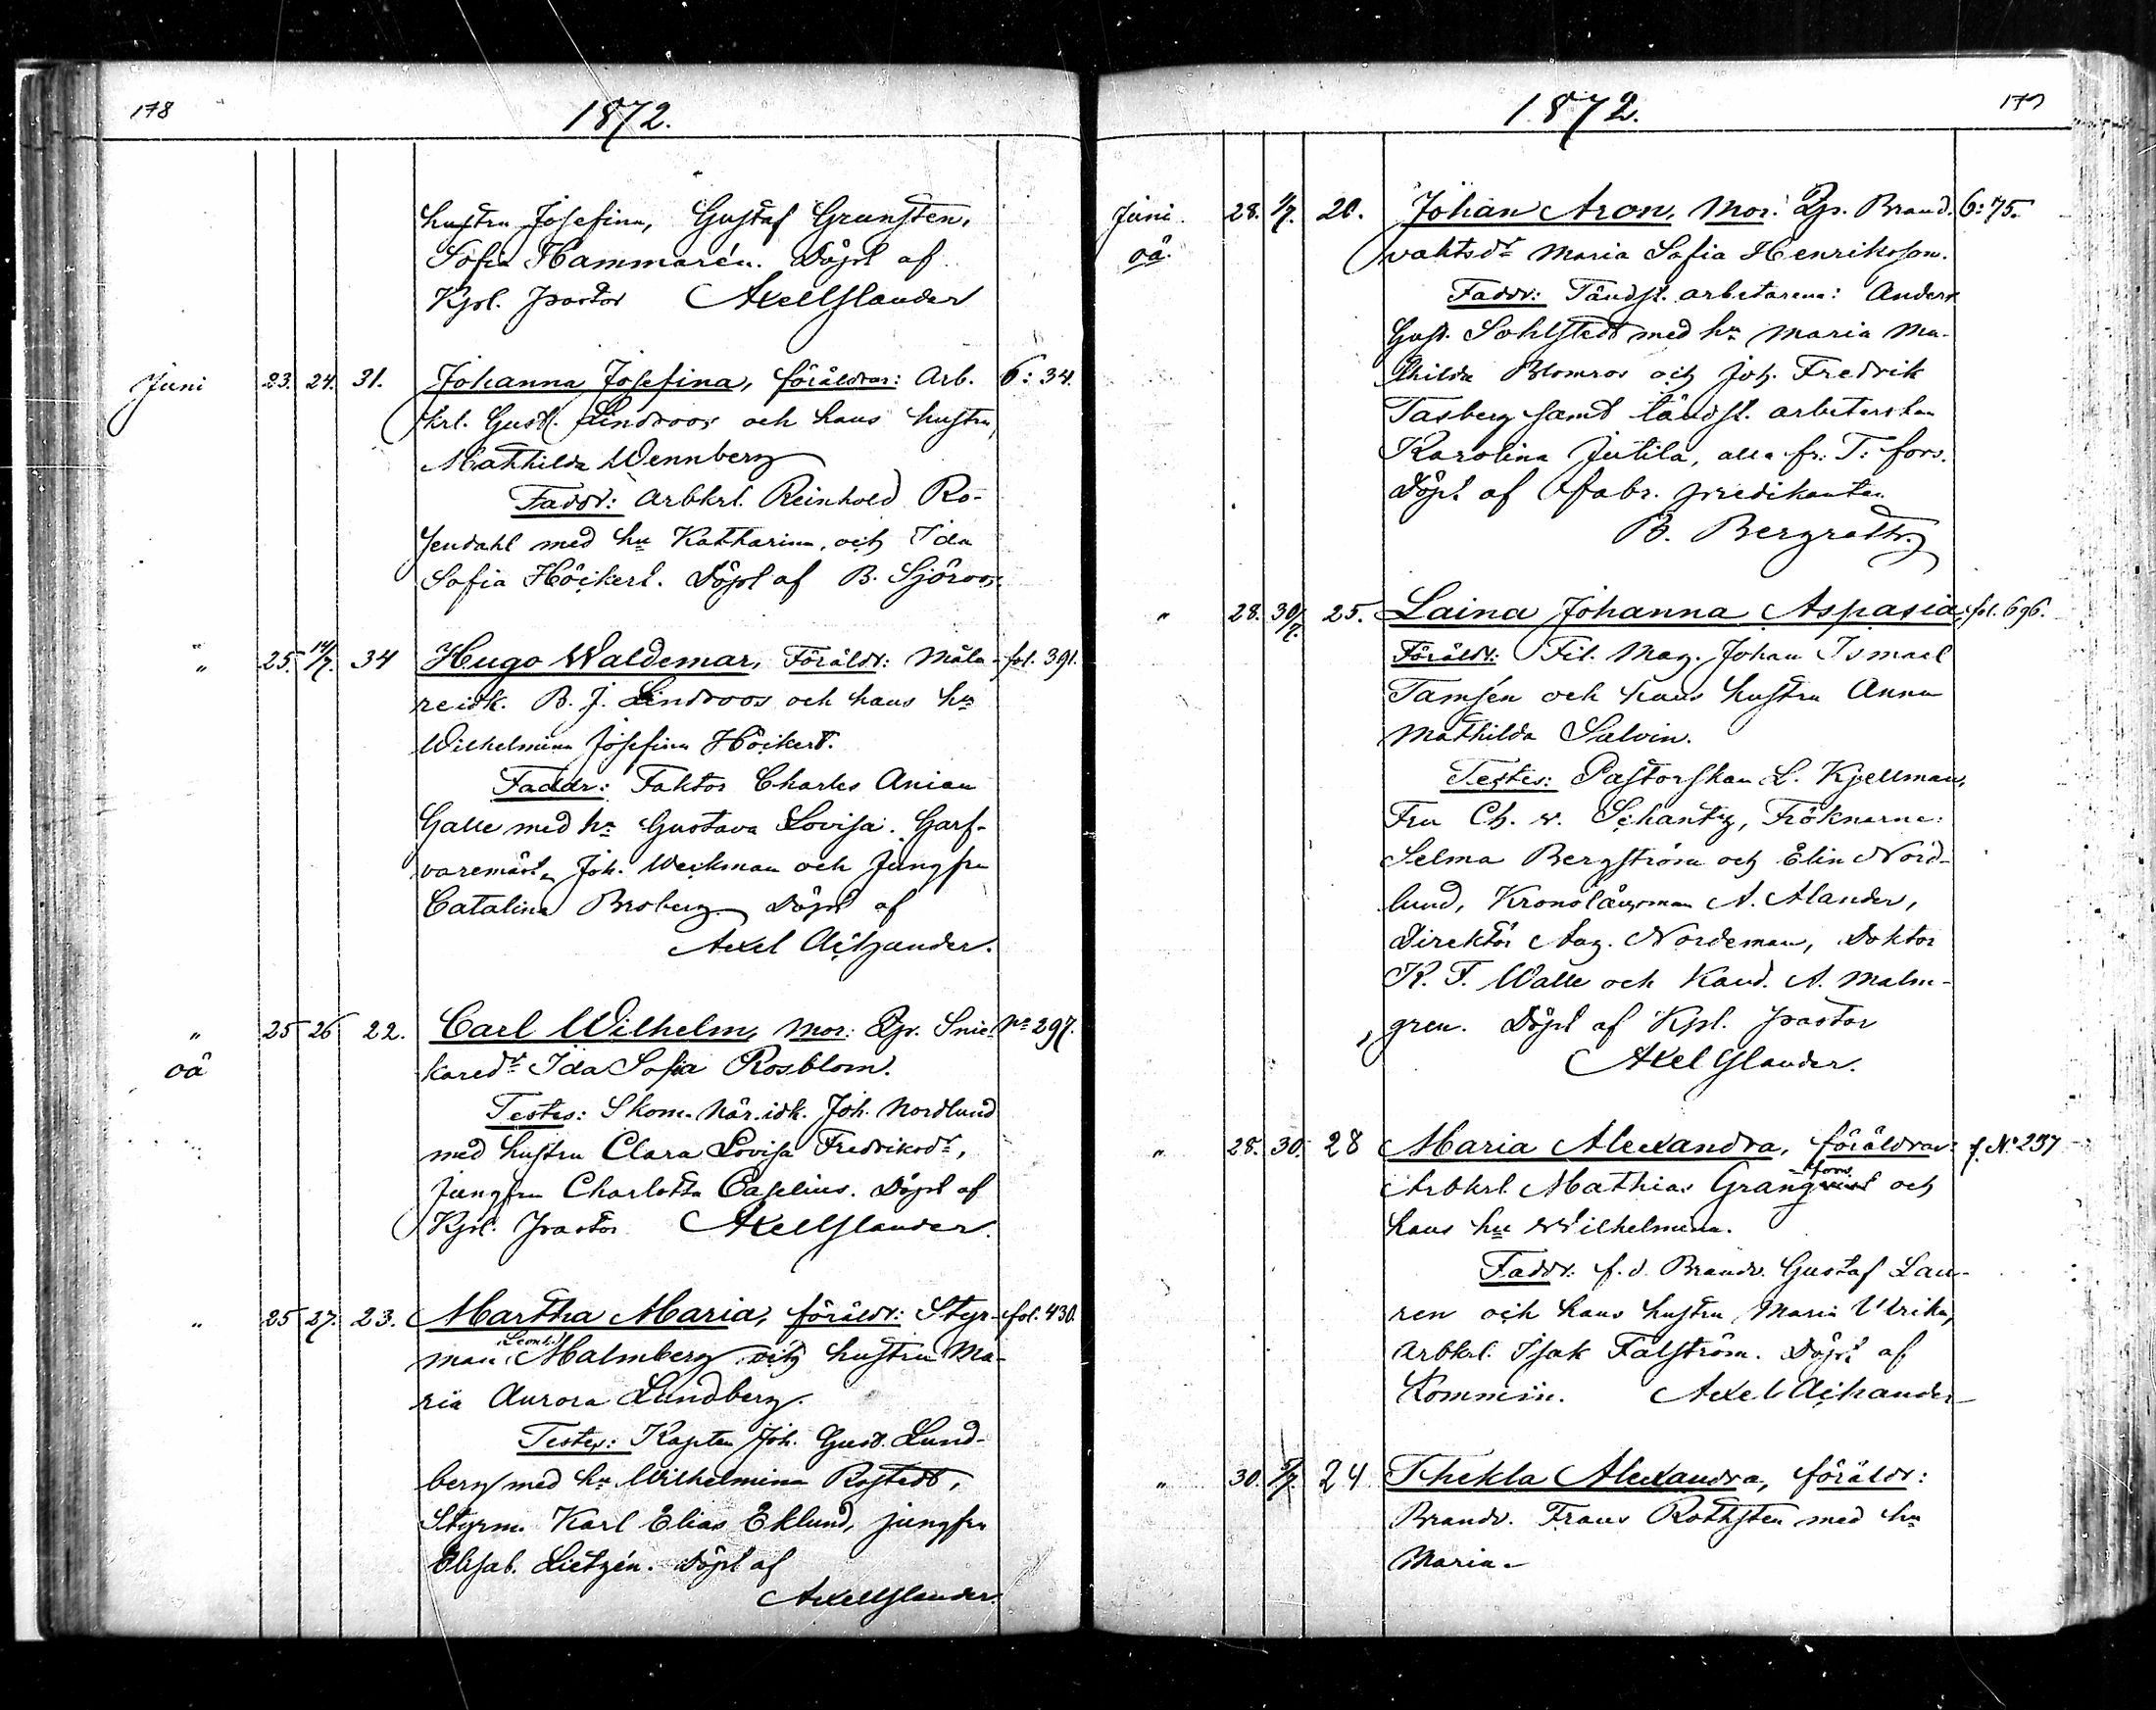 178
1872.
hustru Josefina, Gustaf Grunsten,
Sofia Hammarén. Döpt af
Kpl. pastor Axel Ylander
Juni 23. 24. 31. Johanna Josefina, föräldrar: Arb. 6: 34.
krl. Gust. Lindroos och hans hustru
Mathilda Wennberg
Faddr: Arbkrl. Reinhold Ro-
sendahl med hu Katharina, och Ida
Sofia Höckert. Döpt af B. Sjöroos.
" 25. 14/7. 34 Hugo Waldemar, Föräldr: Måla- fol. 391.
reidk. B. J. Lindroos och hans hu
Wilhelmina Josefina Höckert.
Faddr: Faktor Charles Anian
Galle med hu Gustava Lovisa. Garf-
varemäst. Joh. Weckman och Jungfru
Catalina Broberg. Döpt af
Axel
" 25 26 22. Carl Wilhelm, mor: Qp. Snic- No 297.
oä karedr Ida Sofia Rosblom.
Testes: Skom. När.idk. Joh. Nordlund
med hustru Clara Lovisa Fredriksdr,
jungfru Charlotta Caselius. Döpt af
Kpl. Pastor Axel Ylander.
" 25 27. 23. Martha Maria, föräldr: Styr- fol. 430.
man Malmberg och hustru Ma-
ria Aurora Lundberg.
Testes: Kapten Joh. Gust. Lund-
berg med hu Wilhelmina Rostedt,
Styrm. Karl Elias Eklund, jungfru
Elisab. Lietzén. Döpt af
Axel Ylander.
1872.
179
Juni 28. 1/7. 20. Johan Aron, Mor: Qp. Brand- 6: 75.
oä. vaktsdr Maria Sofia Henriksson.
Faddr: Tändst. arbetarena: Anders
Gust. Sohlstedt med hu Maria Ma-
thilda Blomros och Joh. Fredrik
Tasberg samt tändst. arbeterskan
Karolina Jutila, alla fr. T: fors.
Döpt af fabr. predikanten
B. Bergroth.
" 28. 30/7. 25. Laina Johanna Aspasia, fol. 696.
Föräldr: Fil. Mag. Johan Ismael
Tamsén och hans hustru Anna
Mathilda Salvin.
Testes: Pastorskan L. Kjellman,
Fru Ch. v. Schantz, Fröknarna:
Selma Bergström och Elin Nord-
lund, Kronolänsman A. Alander,
Direktör Aug. Nordeman, Doktor
K. F. Walle och Kand. A. Malm-
gren. Döpt af Kpl. pastor
Axel Ylander.
" 28. 30. 28 Maria Alexandra, föräldrar: f. No 237
Arbkrl. Mathias Granqvist och
hans hu Wilhelmina.
Faddr: f.d. Brandv. Gustaf Lau-
ren och hans hustru Maria Ulrika,
Arbkrl. Isak Falström. Döpt af
Axel
" 30. 5/7. 24 Thekla Alexandra, föräldr:
Brandv. Frans Rothsten med hu
Maria.